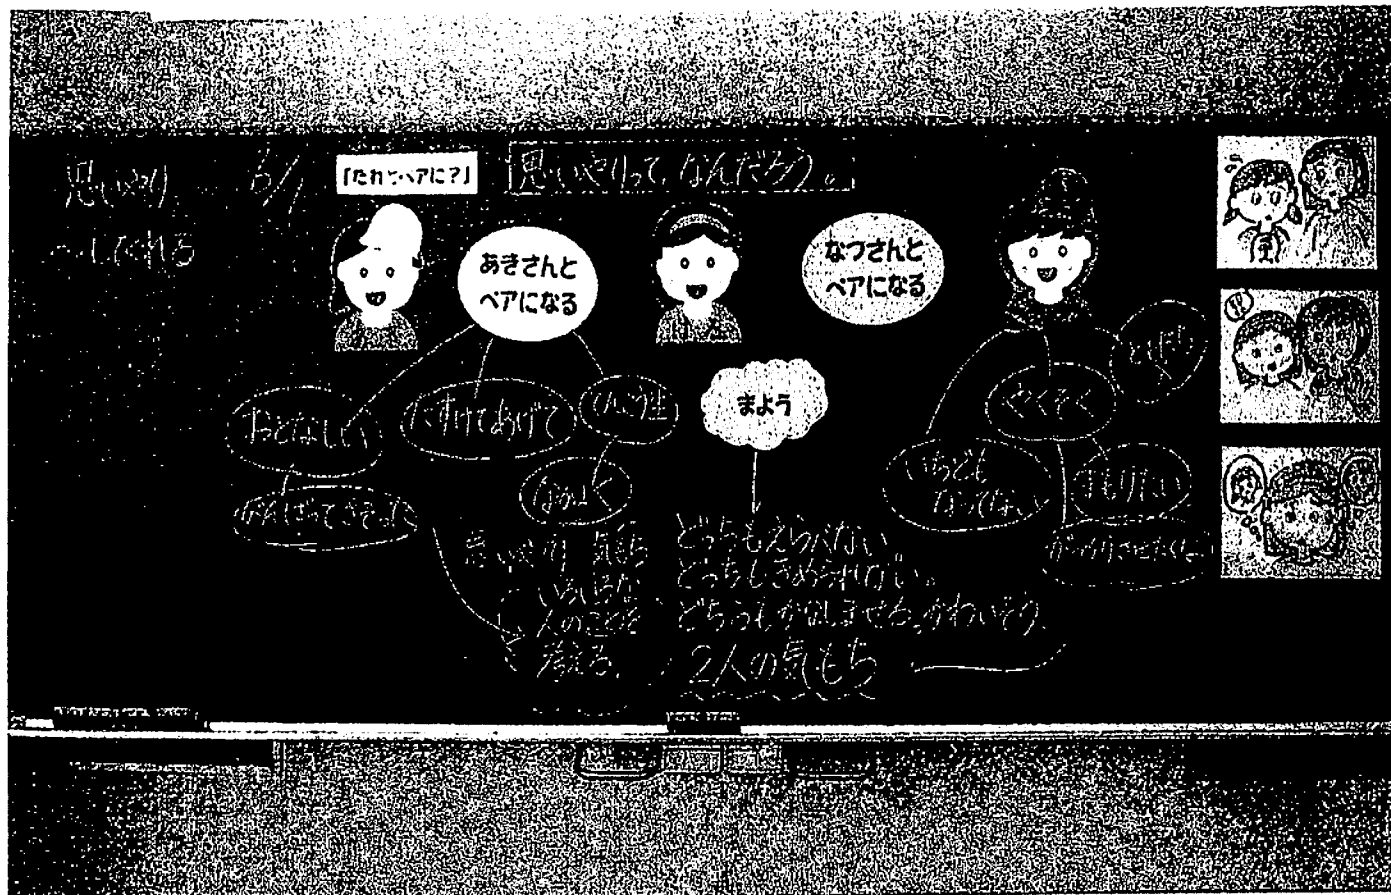 思いやり 6/1
〜してくれる
「だれとペアに？」
思いやりって なんだろう。
あきさんと
ペアになる
なつさんと
ペアになる
まよう
おとなしい
たすけてあげて
なかよく
やくそく
いちども
なってない
がっかりさせたくない
思いやり 気もち
いろいろな
人のことを
考える。
どっちもえらべない
どっちもきめられない。
どちらもかなしませる。かわいそう。
2人の気もち